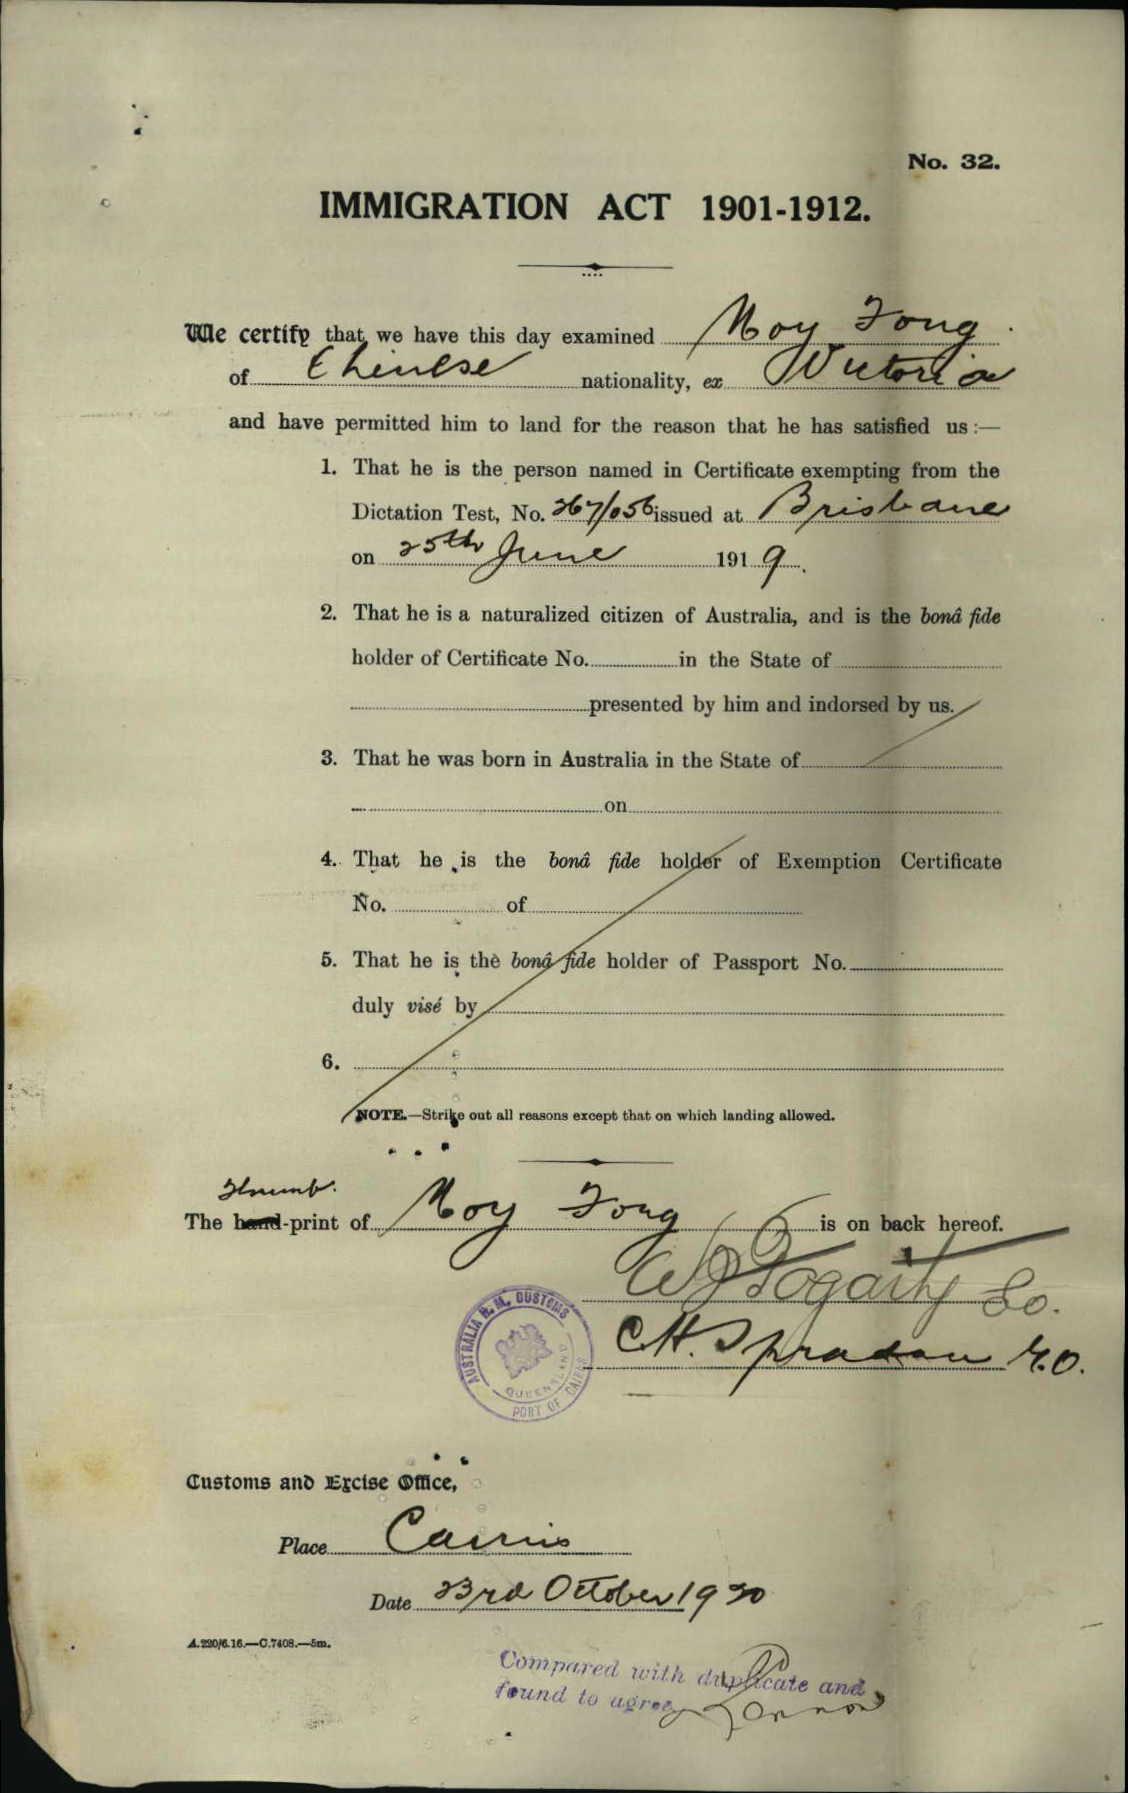 No. 32.
IMMIGRATION ACT 1901-1912.
We certify that we have this day examined Moy Fong
of Chinese nationality, ex Victoria
and have permitted him to land for the reason that he has satisfied us :—
1. That he is the person named in Certificate exempting from the
Dictation Test, No. 267/056 issued at Brisbane
on 25th June 1919.
2. That he is a naturalized citizen of Australia, and is the bonâ fide
holder of Certificate No. in the State of
presented by him and indorsed by us.
3. That he was born in Australia in the State of
on
4. That he is the bonâ fide holder of Exemption Certificate
No. of
5. That he is the bonâ fide holder of Passport No.
duly visé by
6.
NOTE.—Strike out all reasons except that on which landing allowed.
Thumb.
The hand-print of Moy Fong is on back hereof.
Fogarty
C.H.
AUSTRALIA H. M. CUSTOMS
QUEENSLAND
PORT OF CAIRNS
Customs and Excise Office,
Place Cairns
Date 23rd October 1920
A.220/6.16.—C.7408.—5m.
Compared with duplicate and
found to agree